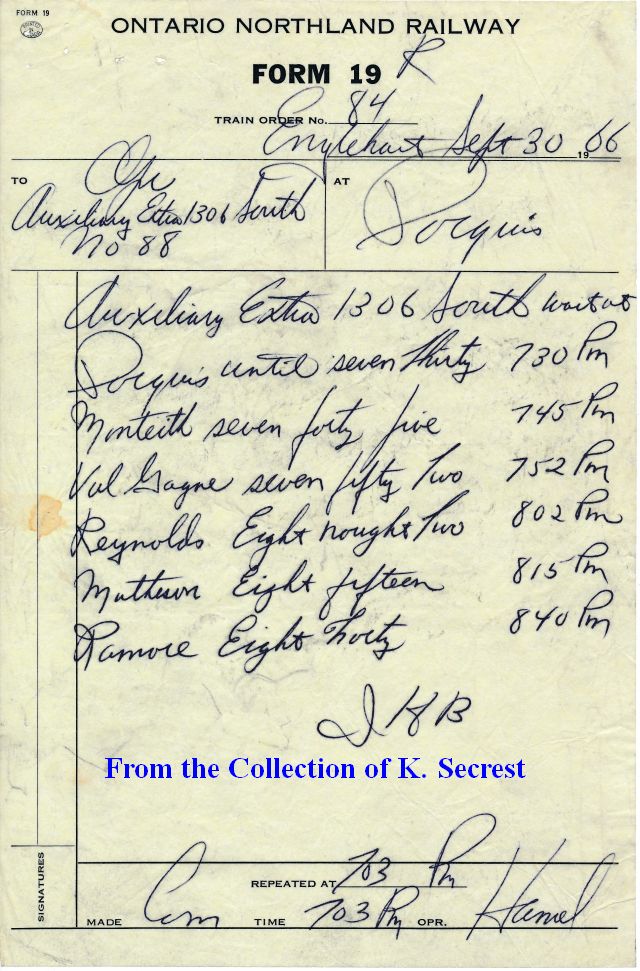 FORM 19
ONTARIO NORTHLAND RAILWAY
FORM 19 R
TRAIN ORDER No. 84
Englehart Sept 30 1966
TO Opr AT Porquis
Auxiliary Extra 1306 South
No 88
Auxiliary Extra 1306 South wait at
Porquis until seven thirty 730 Pm
Monteith seven forty five 745 Pm
Val Gagne seven fifty Two 752 Pm
Reynolds Eight nought Two 802 Pm
Matheson Eight fifteen 815 Pm
Ramore Eight Forty 840 Pm
From the Collection of K. Secrest
SIGNATURES
REPEATED AT 703 Pm
MADE Com TIME 703 Pm OPR. Hamel